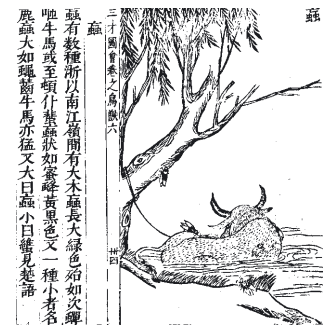 蝱
三才圖會卷之鳥獸六
卅四
蝱
蝱有数種浙以南江嶺間有大木蝱長大綠色殆如次蟬
咂牛馬或至頓仆蜚蝱狀如蜜蜂黃黑色又一種小者名
鹿蝱大如蠅齧牛馬亦猛又大曰蝱小曰見楚語